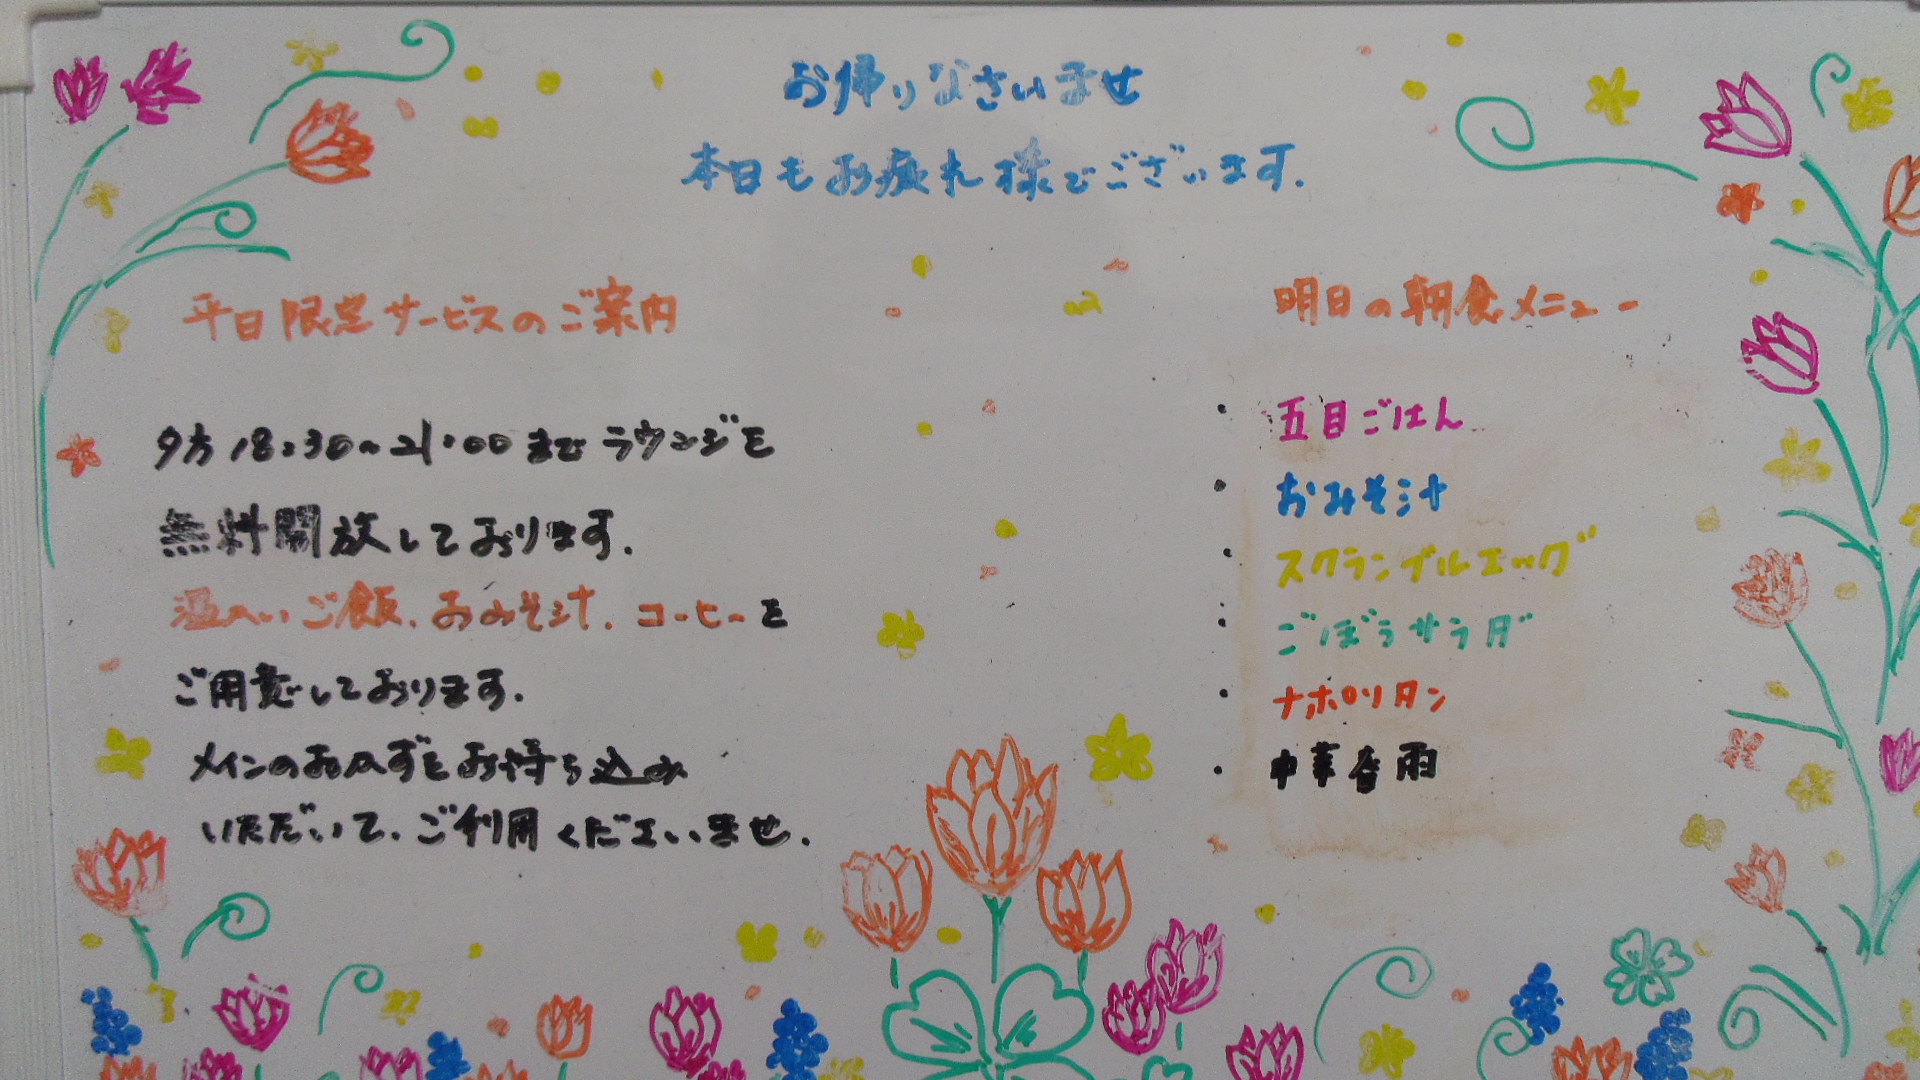 お帰りなさいませ
本日もお疲れ様でございます.
平日限定サービスのご案内
夕方18:30~21:00までラウンジを
無料開放しております.
温かいご飯.おみそ汁.コーヒーを
ご用意しております.
メインのおかずをお持ち込み
いただいて.ご利用くださいませ.
明日の朝食メニュー
・五目ごはん
・おみそ汁
・スクランブルエッグ
・ごぼうサラダ
・ナポリタン
・中華春雨